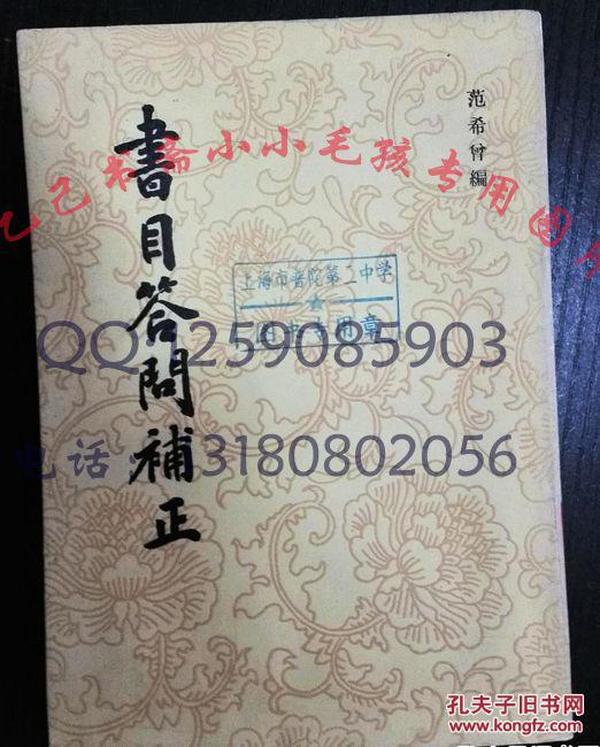 范希曾編
書目答問補正
乙己书斋小小毛孩专用图
上海市普陀第二中学
图书专用章
QQ:259085903
电话:13180802056
孔夫子旧书网
www.kongfz.com